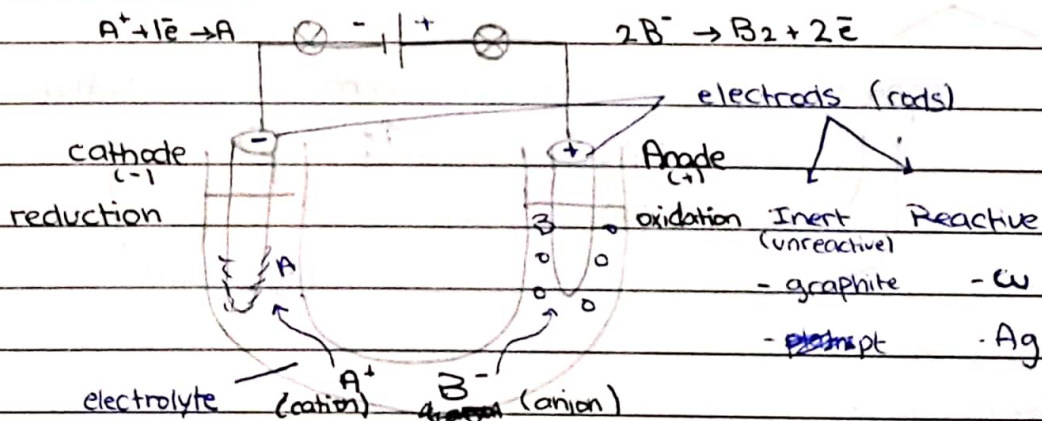 A⁺ + 1e̅ → A - + 2B⁻ → B2 + 2e̅
electrods (rods)
cathode - + Anode
(-) (+)
reduction B oxidation Inert Reactive
(unreactive)
A - graphite - Cu
- pt - Ag
A⁺ B⁻
electrolyte (cation) (anion)